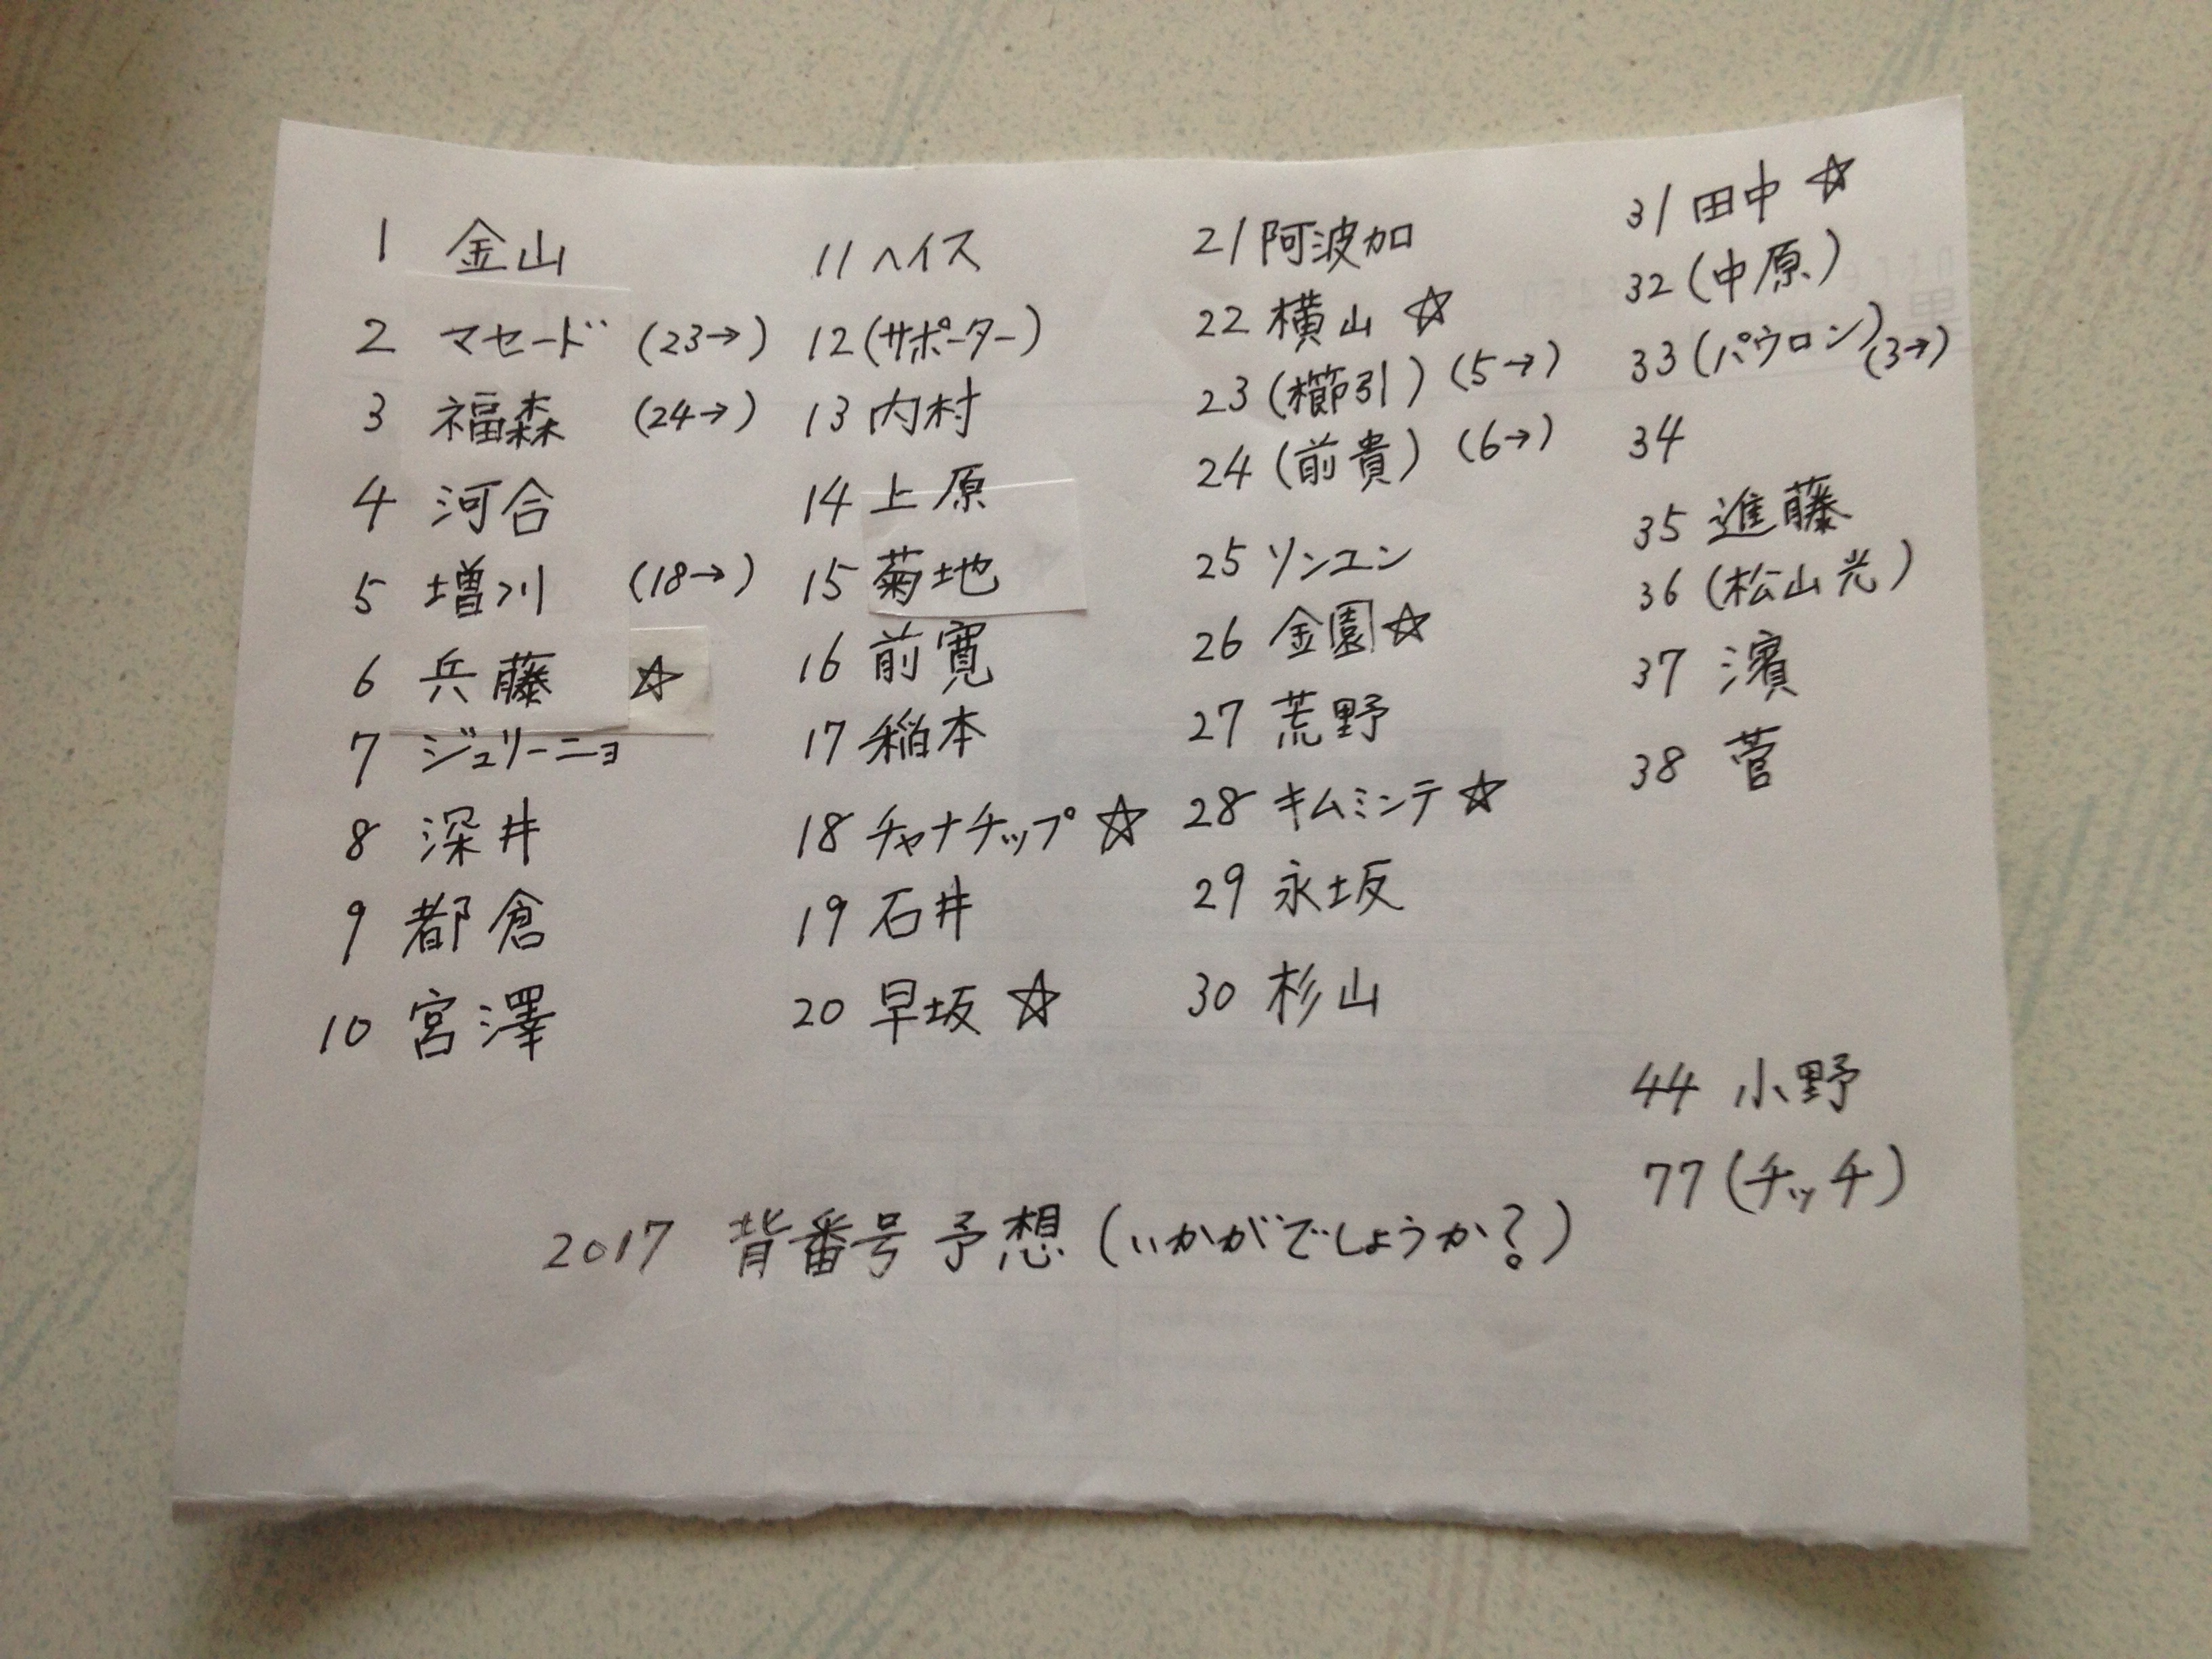 1 金山
2 マセード (23→)
3 福森 (24→)
4 河合
5 増川 (18→)
6 兵藤 ☆
7 ジュリーニョ
8 深井
9 都倉
10 宮澤
11 ヘイス
12 (サポーター)
13 内村
14 上原
15 菊地
16 前寛
17 稲本
18 チャナチップ ☆
19 石井
20 早坂 ☆
21 阿波加
22 横山 ☆
23 (櫛引) (5→)
24 (前貴) (6→)
25 ソンユン
26 金園 ☆
27 荒野
28 キムミンテ ☆
29 永坂
30 杉山
31 田中 ☆
32 (中原)
33 (パウロン) (3→)
34
35 進藤
36 (松山光)
37 濱
38 菅
44 小野
77 (チッチ)
2017 背番号予想 (いかがでしょうか?)